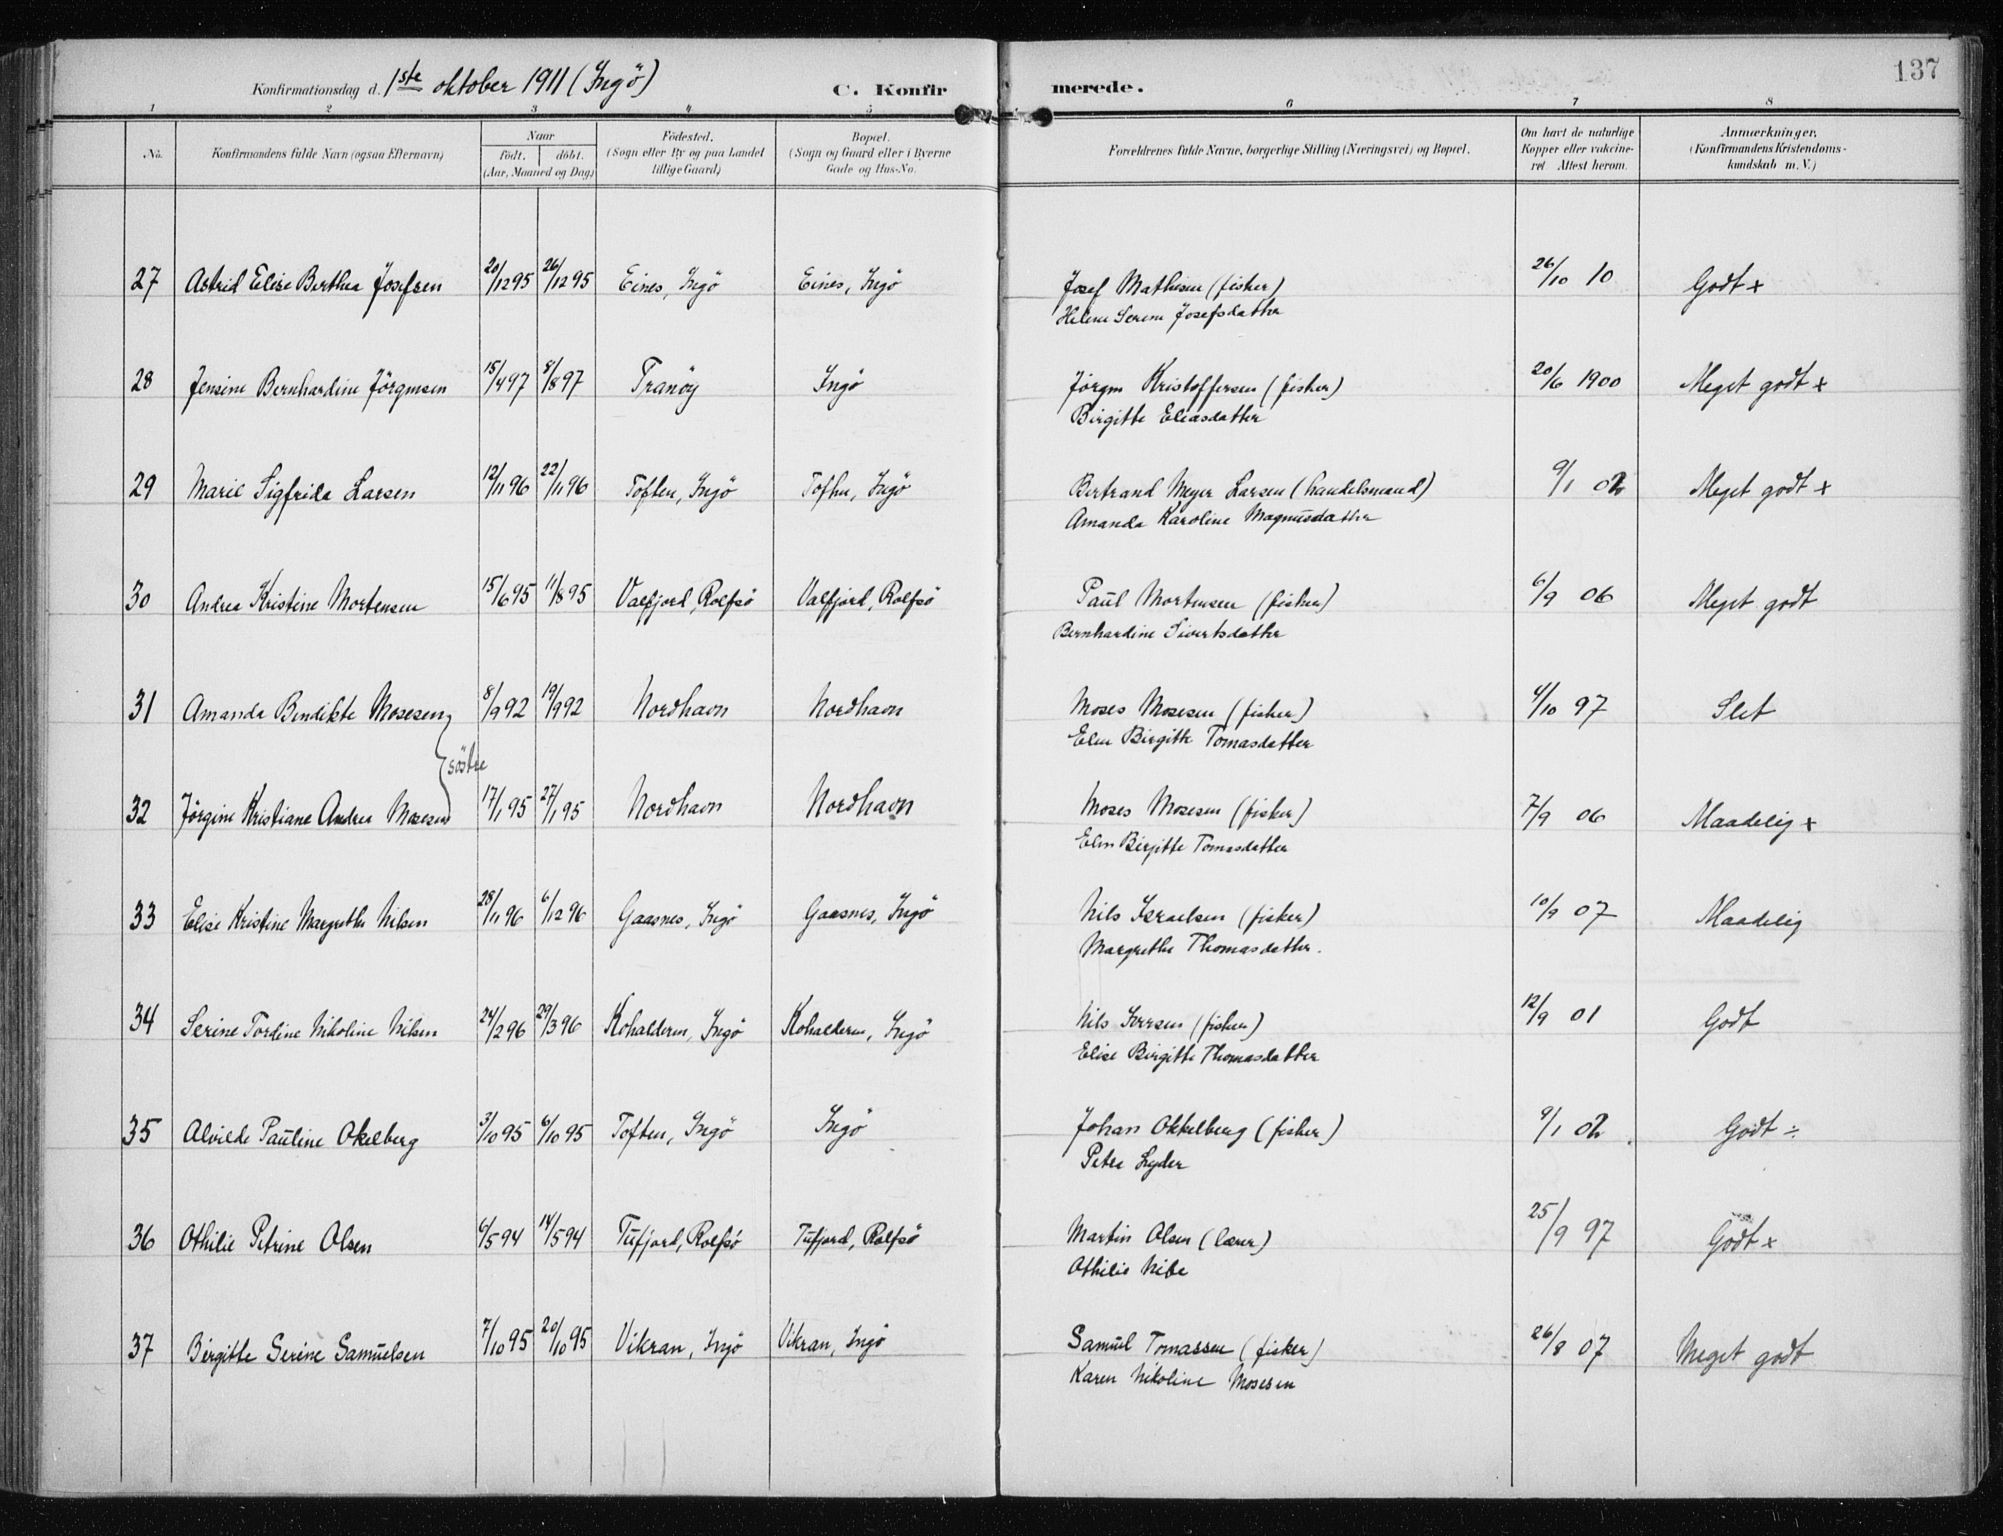 137
Konfirmationsdag d. 1ste oktober 1911 (Ingö) C. Konfirmerede.
1 2 3 4 5 6 7 8
No. Konfirmandens fulde Navn (ogsaa Efternavn) Naar födt. döbt. (Aar, Maaned og Dag) Födested. (Sogn eller By og paa Landet tillige Gaard) Bopæl. (Sogn og Gaard eller i Byerne Gade og Hus-No. Forældrenes fulde Navne, borgerlige Stilling (Næringsvei) og Bopæl. Om havt de naturlige Kopper eller vakcineret. Attest herom. Anmærkninger. (Konfirmandens Kristendomskundskab m. V.)
27 Astrid Elise Berthea Josefsen 20/12 95 26/12 95 Eines, Ingö Eines, Ingö Josef Mathisen (fisker) 26/10 10 Godt +
Helene Serine Josefsdatter
28 Jensine Bernhardine Jörgensen 15/4 97 8/8 97 Tranöy Ingö Jörgen Kristoffersen (fisker) 20/6 1900 Meget godt +
Birgitte Eliasdatter
29 Marie Sigfrida Larsen 12/11 96 22/11 96 Toften, Ingö Toften, Ingö Bertrand Meyer Larsen (handelsmand) 9/1 02 Meget godt +
Amanda Karoline Magnusdatter
30 Andrea Kristine Mortensen 15/6 95 11/8 95 Valfjord, Rolfsö Valfjord, Rolfsö Paul Mortensen (fisker) 6/9 06 Meget godt
Bernhardine Sivertsdatter
31 Amanda Bendikte Mosesen 8/9 92 19/9 92 Nordhavn Nordhavn Moses Mosesen (fisker) 4/10 97 Slet
Elen Birgitte Tomasdatter
söstre
32 Jörgine Kristiane Andrea Mosesen 17/1 95 27/1 95 Nordhavn Nordhavn Moses Mosesen (fisker) 7/9 06 Maadelig +
Elen Birgitte Tomasdatter
33 Elise Kristine Margrethe Nilsen 28/11 96 6/12 96 Gaasnes, Ingö Gaasnes, Ingö Nils Israelsen (fisker) 10/9 07 Maadelig
Margrethe Thomasdatter.
34 Serine Tordine Nikoline Nilsen 24/2 96 29/3 96 Kohalderen, Ingö Kohalderen, Ingö Nils Iversen (fisker) 12/9 01 Godt
Elise Birgitte Thomasdatter
35 Alvilde Pauline Okelberg 3/10 95 6/10 95 Toften, Ingö Ingö Johan Okkelberg (fisker) 9/1 02 Godt ÷
Petra Lyder
36 Othilie Petrine Olsen 6/5 94 14/5 94 Tufjord, Rolfsö Tufjord, Rolfsö Martin Olsen (lærer) 25/9 97 Godt +
Othilie Nibe
37 Birgitte Serine Samuelsen 7/10 95 20/10 95 Vikran, Ingö Vikran, Ingö Samuel Tomassen (fisker) 26/8 07 Meget godt
Karen Nikoline Mosesen